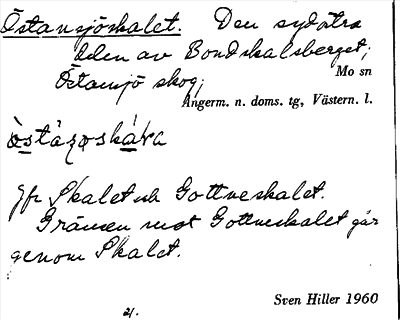 Östansjöskalet. Den sydöstra
delen av Bondskalsberget;
Östansjö skog;
Mo sn
Ångerm. n. doms. tg, Västern. l.
Jfr Skalet och Gottneskalet.
Gränsen mot Gottneskalet går
genom Skalet.
Sven Hiller 1960
21.